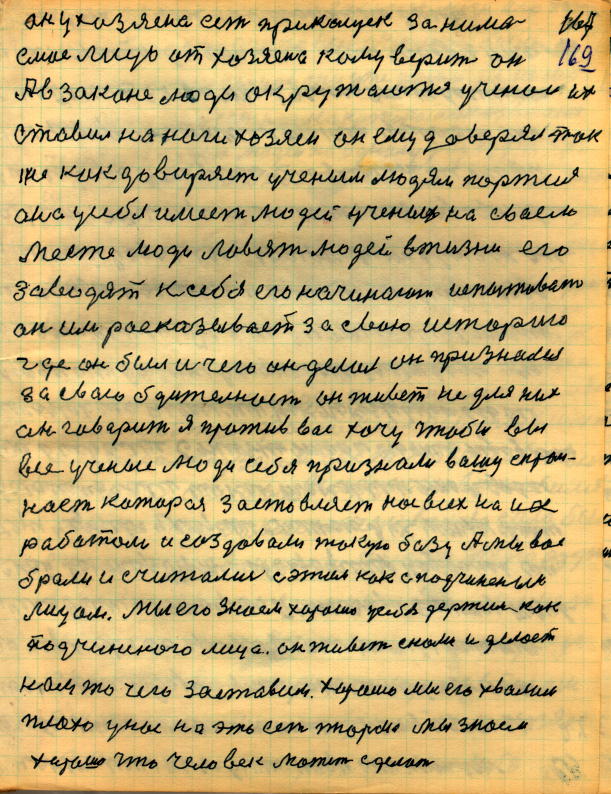 он у хозяена сет прикащек за нима
смое лицо от хозяена кому верит он
А в законе люди окружаются ученои их
ставил на ноги хозяен он ему доверял так
169
же как довиряет ученым людям портия
она у себя имеет людей ученых на своею
месте люди ловят людей в жизни его
заводят к себя его начинают испытовать
он им расказывает за свою историю
где он был и чего он делал он признался
за свою бдителност он живет не для них
он говарит я против вас хочу чтобы вы
все ученые люди себя признали вашу
ност которая заставляет нас всех на их
работат и создовали такую базу А мы вас
брали и считалис с этим как с подчиненым
лицом. мы его знаем харашо у себя держим как
подчининого лица. он живет снами и делает
нам то чего заставим. харашо мы его хвалим
плохо у нас на это сет тюрмо мы знаем
харашо что человек может сделат